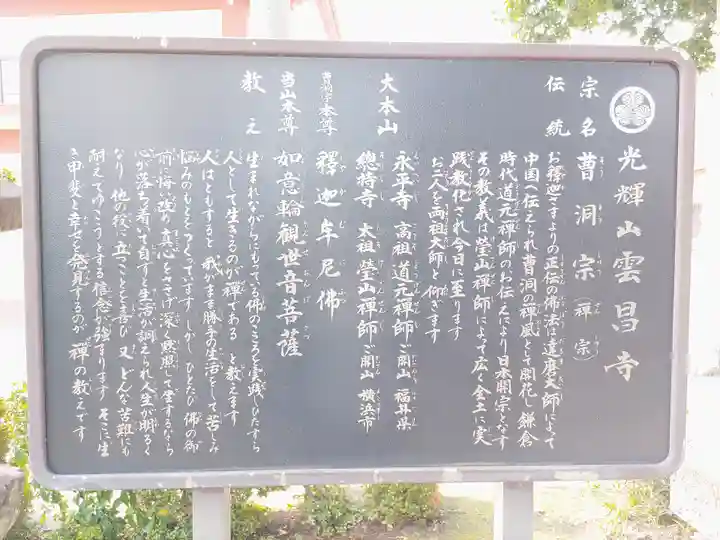 光輝山雲昌寺
宗名 曹洞宗（禅宗）
伝統 お釋迦さまよりの正伝の佛法は達磨大師によって
中国へ伝えられ曹洞の禅風として開花し鎌倉
時代道元禅師のお伝えにより日本開宗となす
その教義は瑩山禅師によって広く全土に実
践教化され今日に至ります
お二人を両祖大師と仰ぎます
大本山 永平寺 高祖 道元禅師 ご開山 福井県
總持寺 太祖 瑩山禅師 ご開山 横浜市
曹洞宗本尊 釋迦牟尼佛
当山本尊 如意輪觀世音菩薩
教え 生まれながらにもっている佛のこころを実践しひたすら
人として生きるのが禅である と教えます
人はともすると 我がまま勝手の生活をして苦しみ
悩みのもとをつくっています しかし ひとたび 佛の御
前に 真心をささげ 深く黙照して坐するなら
心が落ち着いて自ずと生活が調えられ人生が明るく
なり 他の役に立つことを喜び 又 どんな苦難にも
耐えてゆこうとする信念が強まります そこに生
き甲斐と幸せを発見するのが 禅の教えです